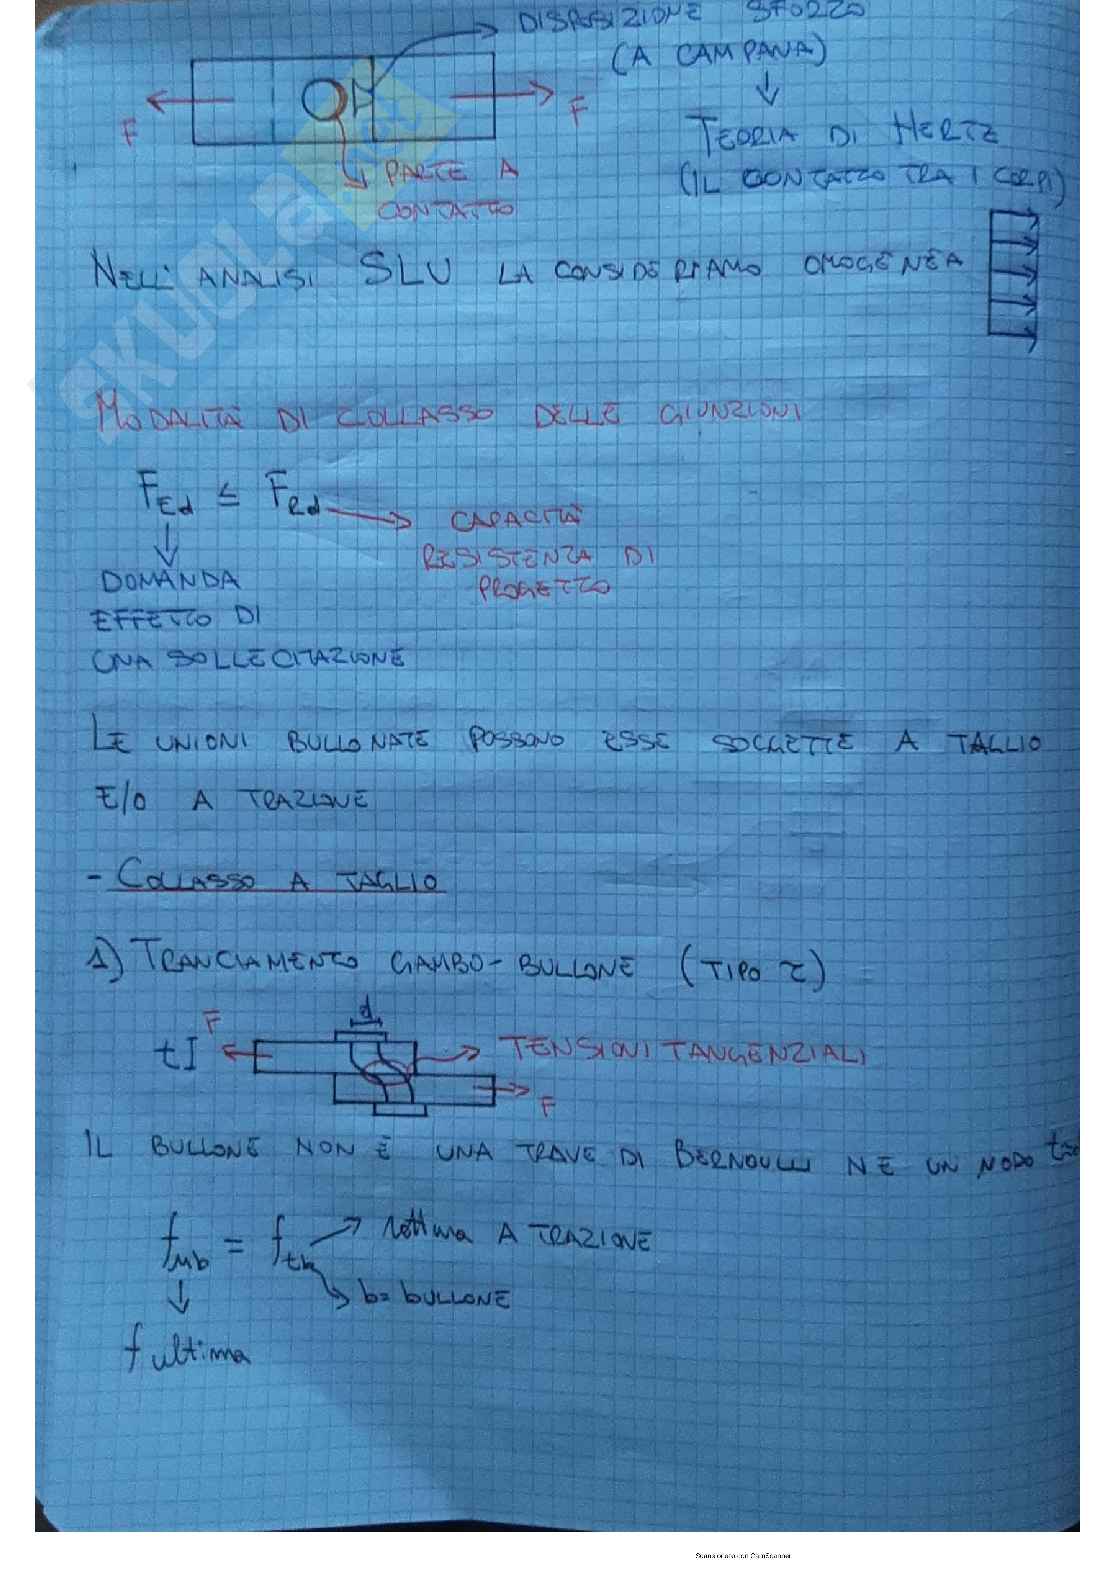 DISPOSIZIONE SFORZO
(A CAMPANA)
F
F
TEORIA DI HERTZ
PARTE A
CONTATTO
(IL CONTATTO TRA I CORPI)
NELL'ANALISI SLU LA CONSIDERIAMO OMOGENEA
MODALITÀ DI COLLASSO DELLE GIUNZIONI
FEd ≤ FRd
CAPACITÀ
RESISTENZA DI
PROGETTO
DOMANDA
EFFETTO DI
UNA SOLLECITAZIONE
LE UNIONI BULLONATE POSSONO ESSE SOGGETTE A TAGLIO
E/O A TRAZIONE
- COLLASSO A TAGLIO
1) TRANCIAMENTO GAMBO-BULLONE (TIPO τ)
d
F
t
TENSIONI TANGENZIALI
F
IL BULLONE NON È UNA TRAVE DI BERNOULLI NE UN NODO
fub = ftb
rottura A TRAZIONE
b= bULLONE
f ultima
SKUOLA.net
Scansionato con CamScanner